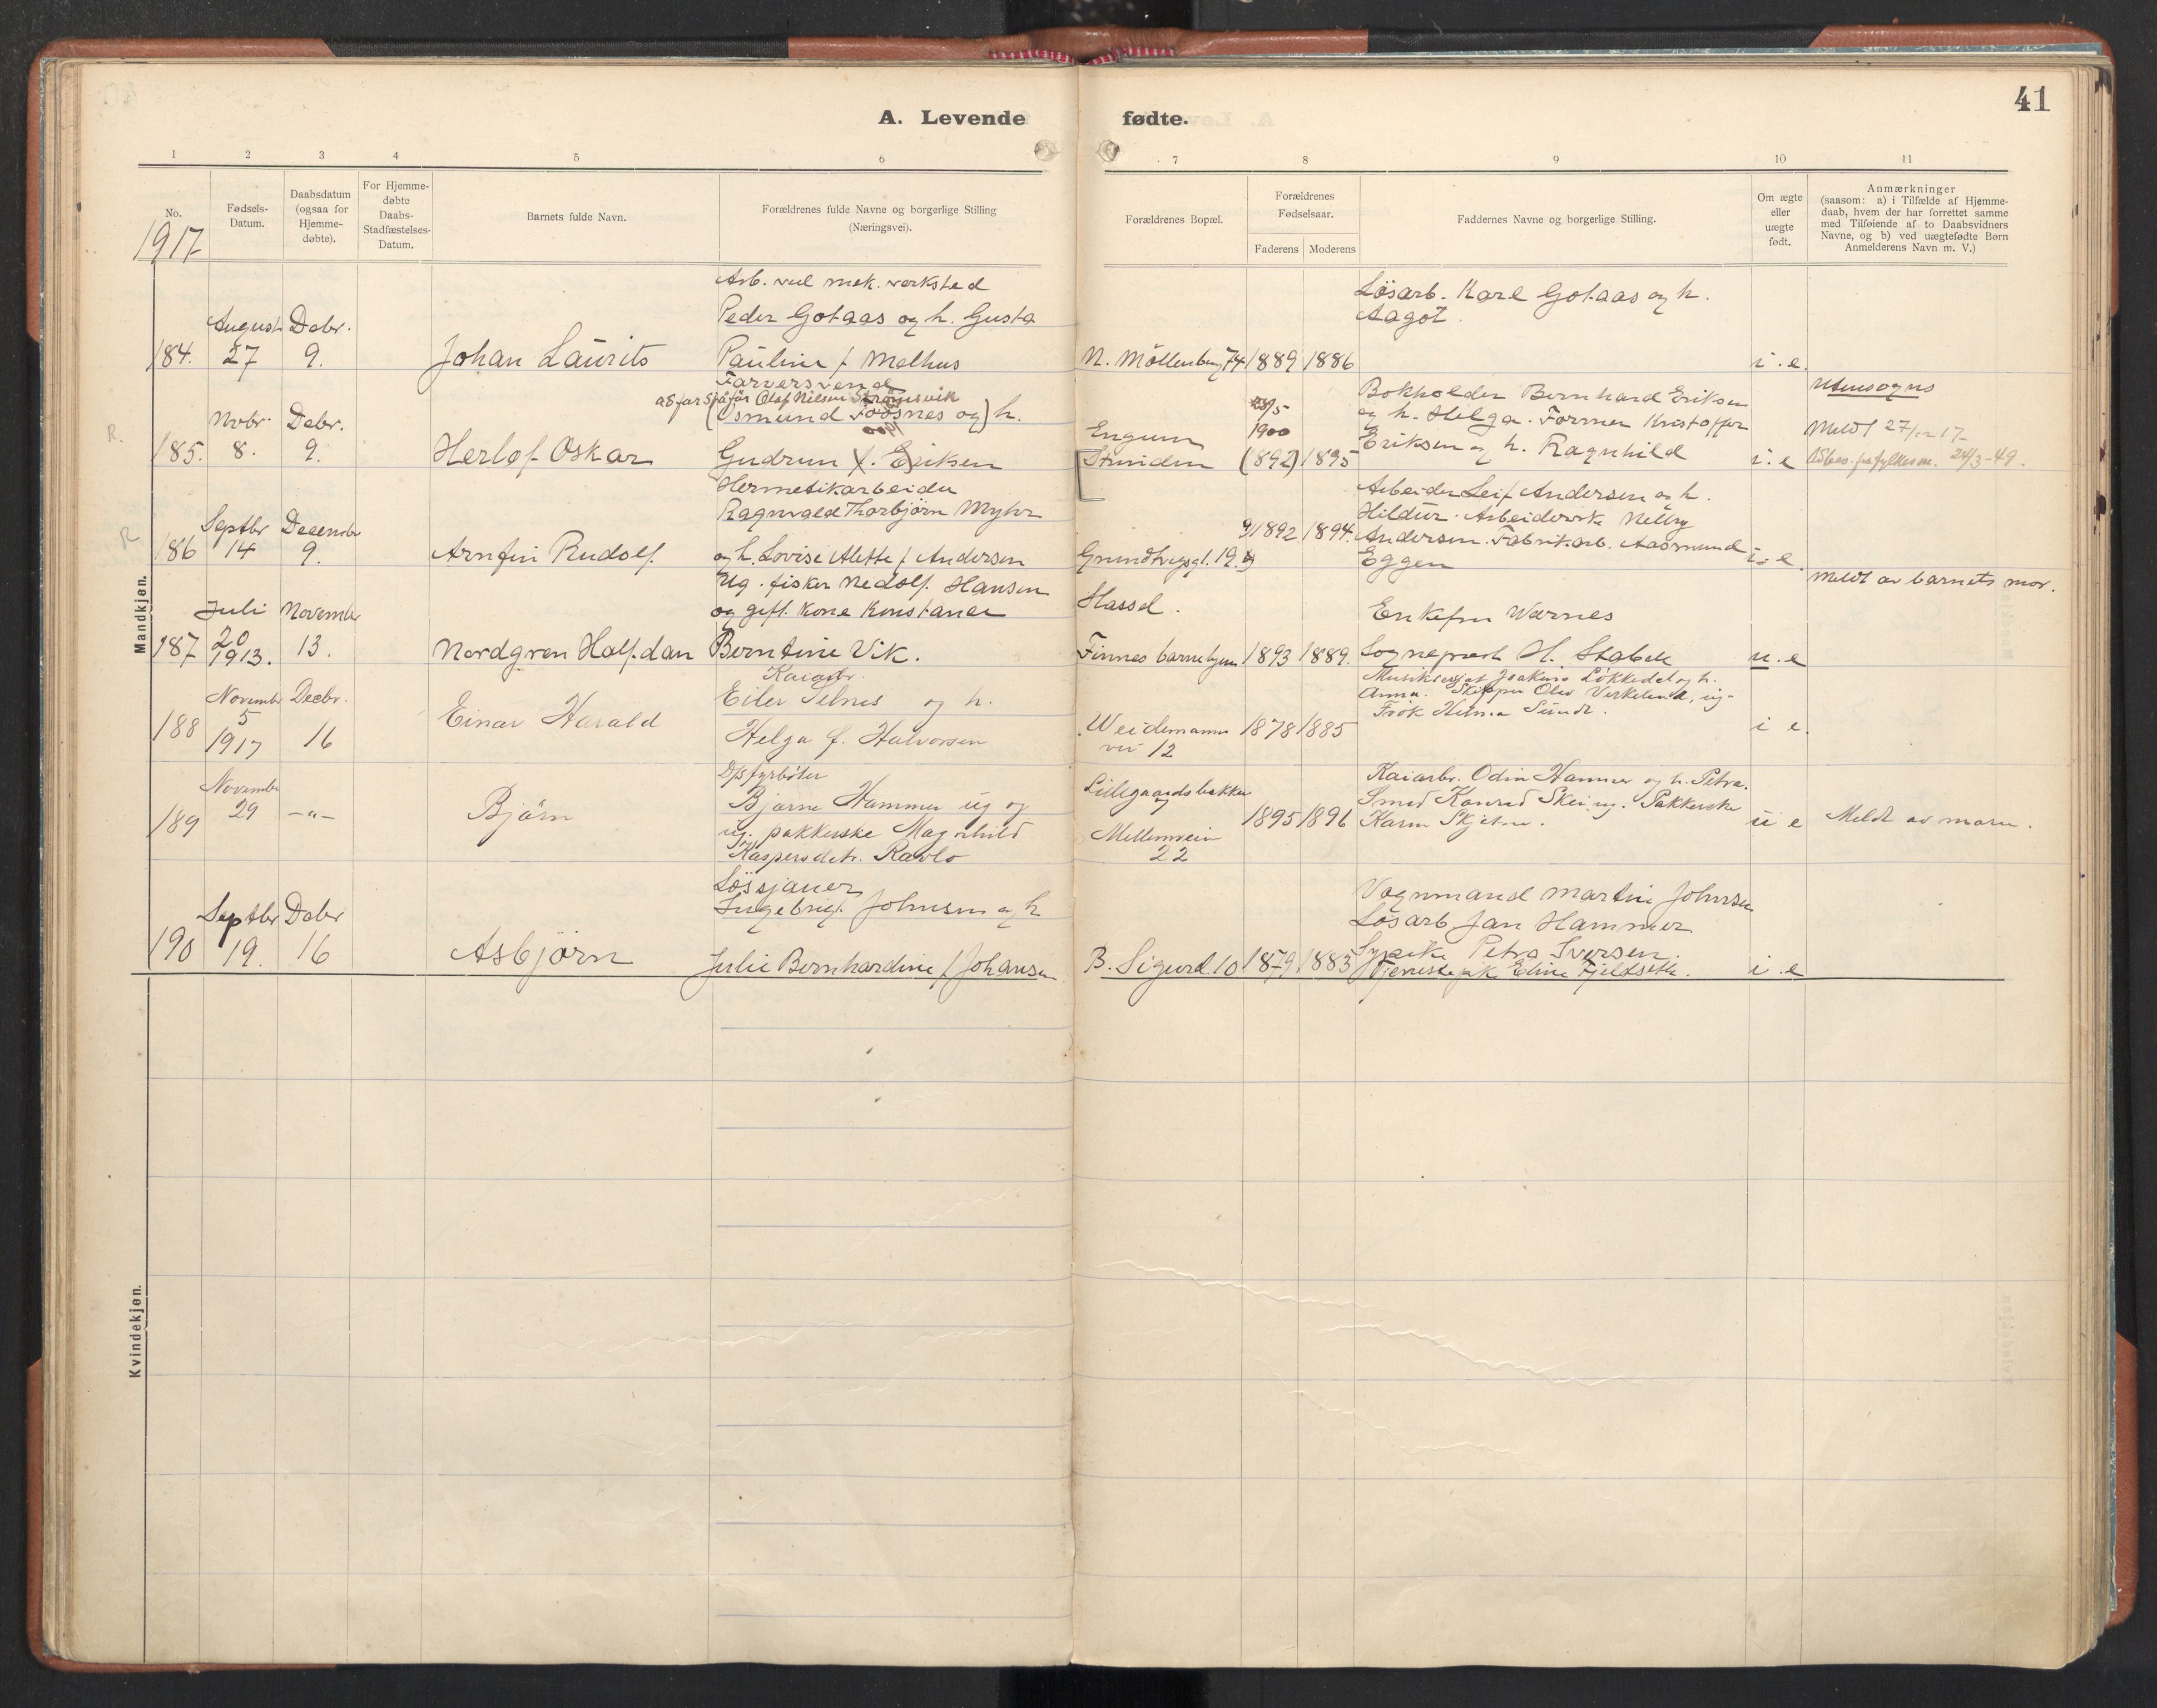 41
A. Levende fødte.
1 2 3 4 5 6 7 8 9 10 11
No.
Fødsels-Datum.
Daabsdatum (ogsaa for Hjemme-døbte).
For Hjemme-døbte Daabs-Stadfæstelses-Datum.
Barnets fulde Navn.
Forældrenes fulde Navne og borgerlige Stilling (Næringsvei).
Forældrenes Bopæl.
Forældrenes Fødselsaar.
Faderens Moderens
Faddernes Navne og borgerlige Stilling.
Om ægte eller uægte født.
Anmærkninger
(saasom: a) i Tilfælde af Hjemme-
daab, hvem der har forrettet samme
med Tilføiende af to Daabsvidners
Navne, og b) ved uægtefødte Børn
Anmelderens Navn m. V.)
1917
Mandkjøn.
184. August 27 Debr. 9.
Johan Laurits
Arb. ved mek. verksted
Peder Gotaas og h. Gusta
Pauline f Melhus
N. Möllenberg 74
1889 1886
Lösarb. Karl Gotaas og h.
Aagot.
i.e.
R.
185. Nvbr. 8. Debr. 9.
Herlof Oskar
Farversvend
adfar Sjåfør Olaf Nielsen Strømsvik
(Osmund Foosnes og) h.
Gudrun f. Eriksen
Engum
Strinden
1900
(1892) 1895
Bokholder Bernhard Eriksen
og h. Helga. Former Kristoffer
Eriksen og h. Ragnhild
i.e
Utensogns
Meldt 27/12 17
24/3-49.
R
186 Septbr 14 Decembr 9.
Arnfin Rudolf.
Hermetikarbeider
Ragnvald Thorbjörn Myhr
og h. Lovise Alette f Andersen
Grundtvigsgt. 19
1892 1894.
Arbeider Leif Andersen og h.
Hildur. Arbeiderske Nelly
Andersen. Fabrikarb. Aasmund
Eggen
i.e.
187 Juli 20 1913. November 13.
Nordgren Halfdan
Ug. fisker Nedolf Hansen
og gift kone Konstance
Berntine Vik.
Hassel.
Finnes barnehjem
1893 1889.
Enkefru Wærnes
Sogneprest H. Stabek
u.e
Meldt av barnets mor.
188 Novembr 5 1917 Decbr. 16
Einar Harald
Kaiarbr.
Eiler Selnes og h.
Helga f. Halvorsen
Weidemanns
vei 12
1878 1885
Anna. Skipper Olav Virkelund, ug.
i e.
189 Novembr 29 -"-
Bjørn
D/s fyrbøter
Bjarne Hammer ug og
ug. pakkerske Magnhild
Kaspersdtr. Ravlo
Lillegaardsbakken
og
Mellemveien
22
1895 1896
Kaiarbr. Odin Hammer og h. Petra.
Smed Konrad Skei, ug. Pakkerske
Karen Skjelne.
u e
Meldt av moren.
190 Septbr 19. Debr 16
Asbjörn
Løssjauer
Ingebrigt Johnsen og h
Julie Bernhardine f Johansen
B. Sigurd 10
1879 1883
Vognmand Martin Johnsen
Lösarb Jan Hammer
Sypike Petra Iversen.
Tjenestepike Eline Fjeldseth.
i.e
Kvindekjøn.